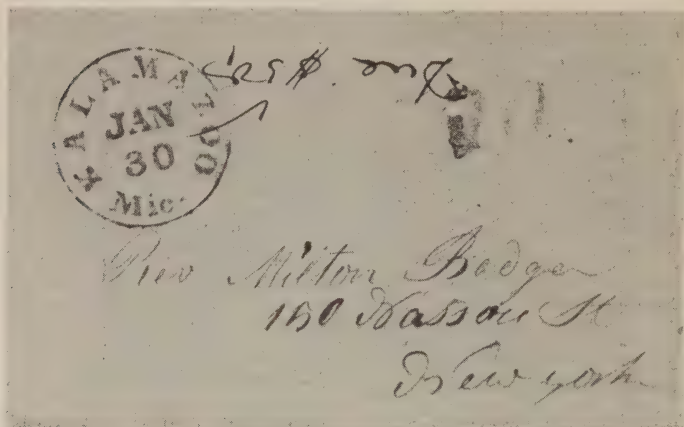 KALAMAZOO
JAN
30
Mic.
Due
Rev Milton Badger
150 Nassau St
New york